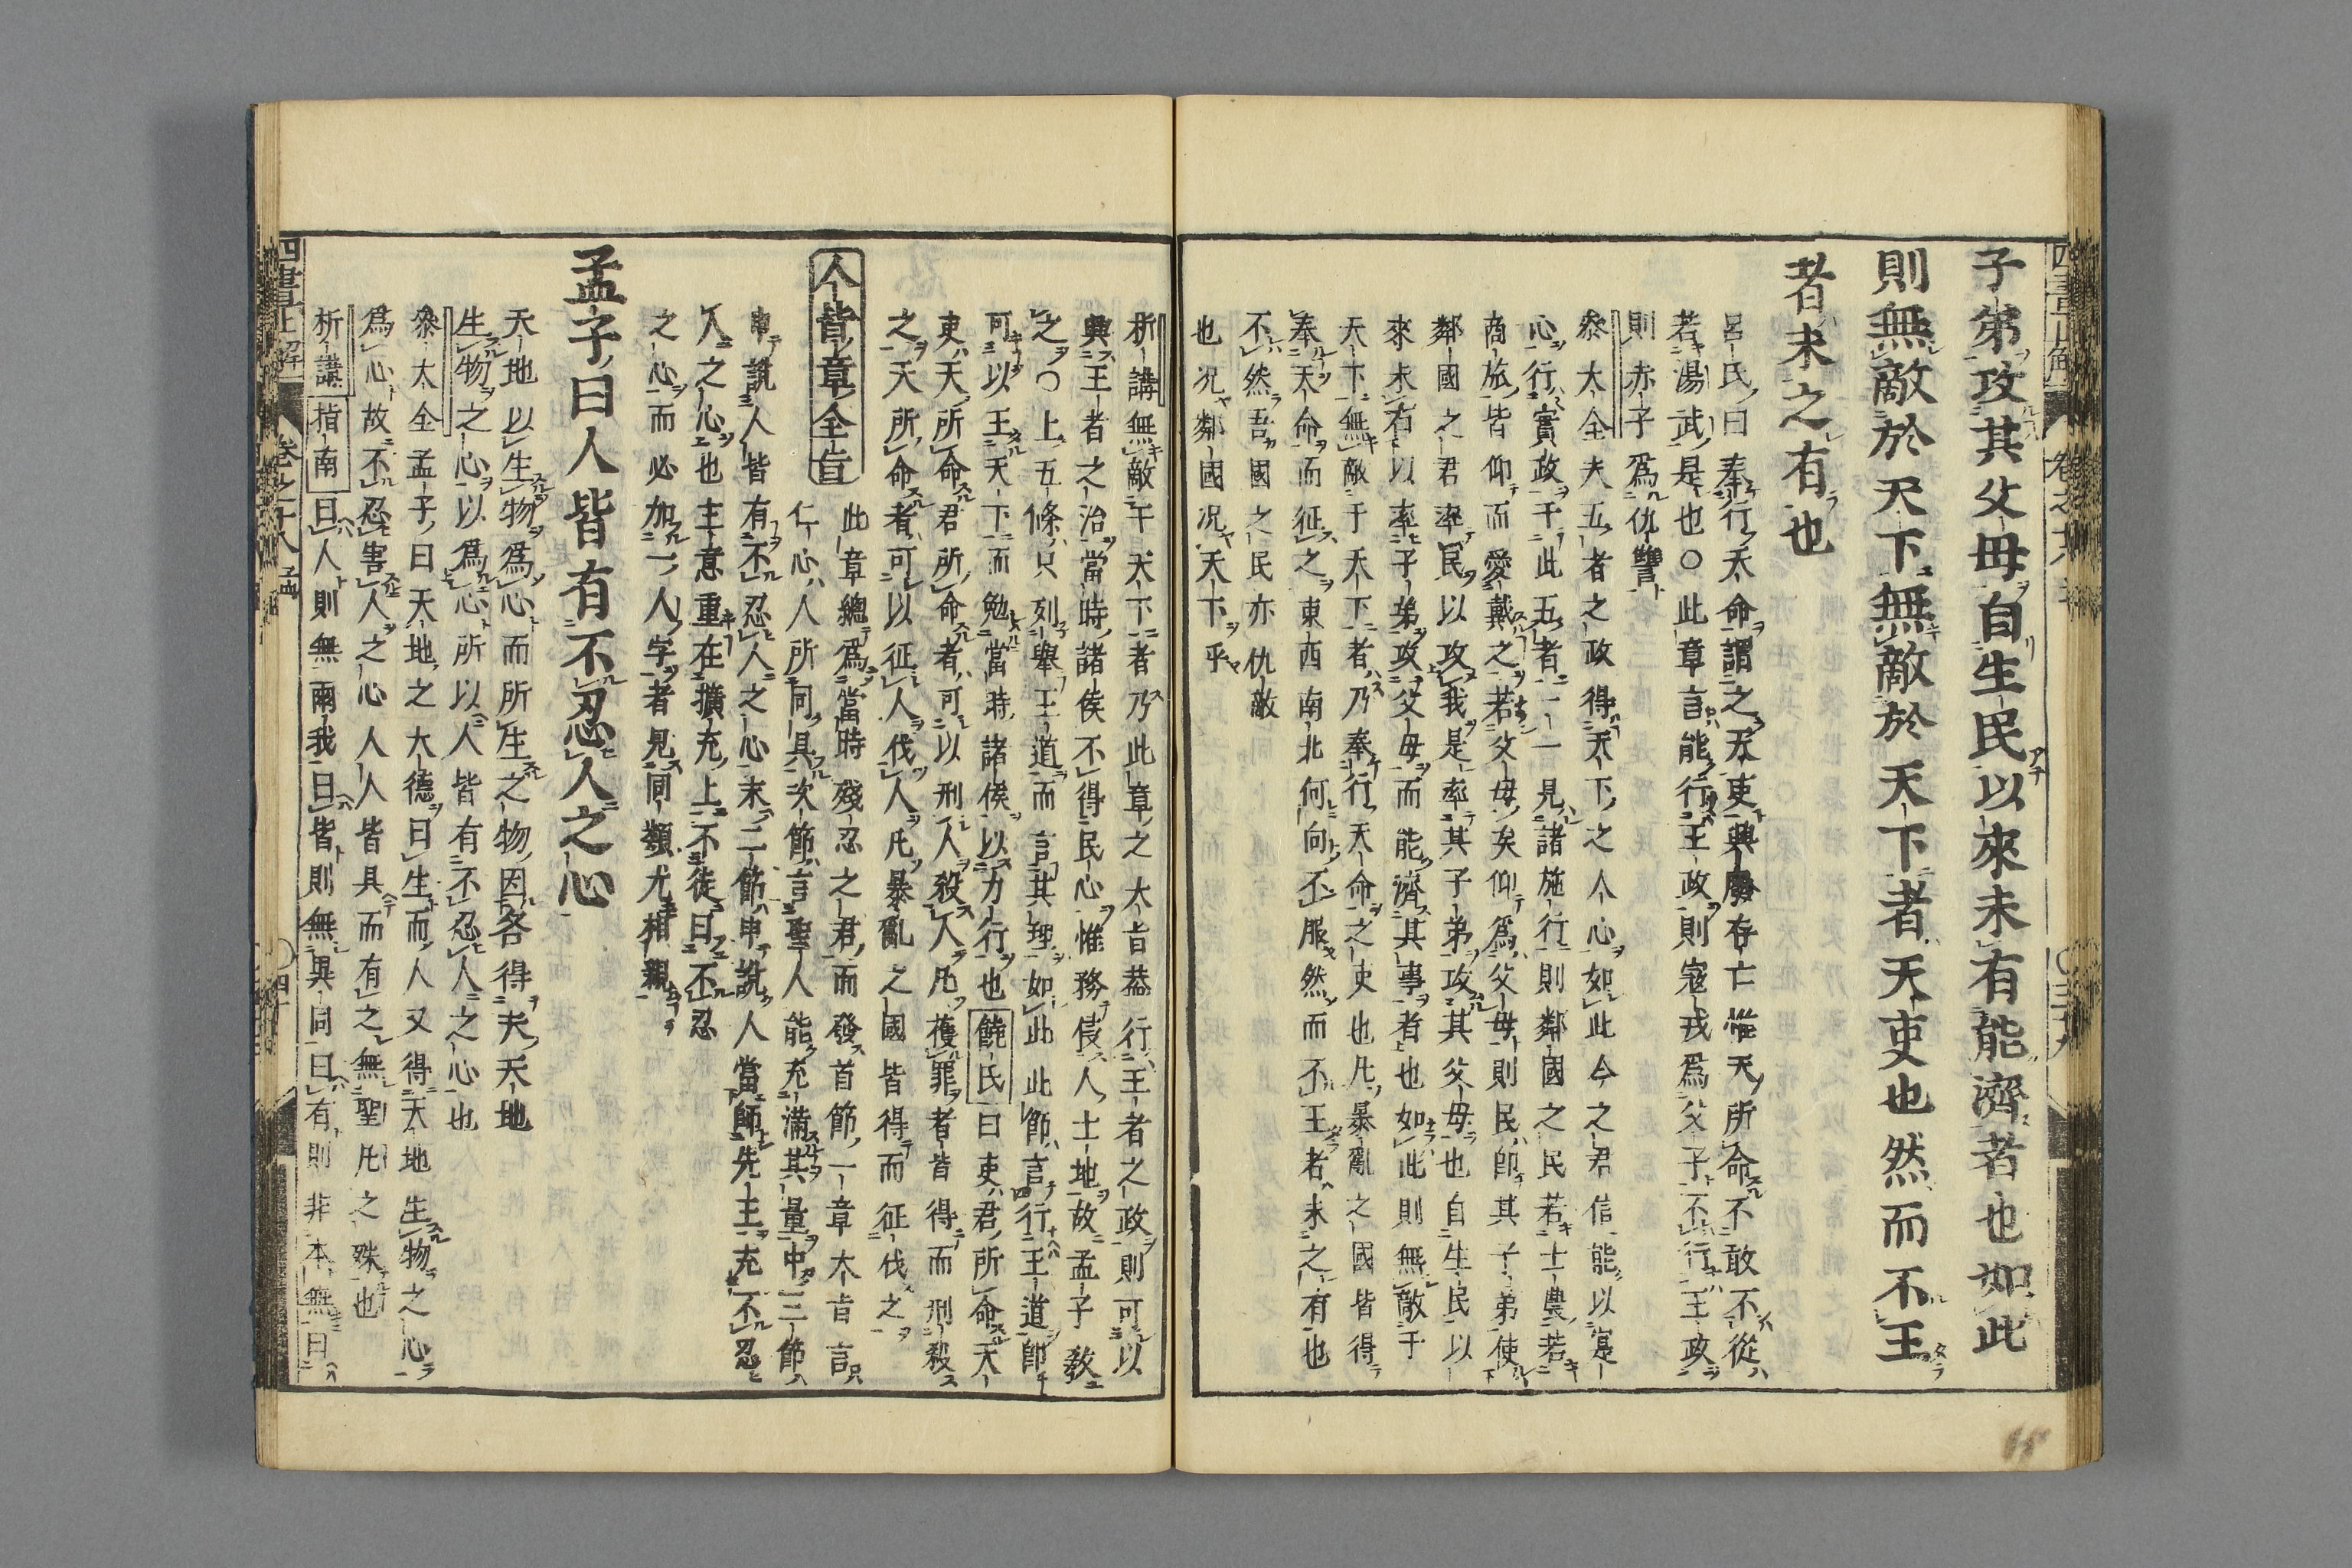 子弟攻其父母自生民以來未有能濟者也如此
則無敵於天下無敵於天下者天吏也然而不王
者未之有也
呂氏曰奉行天命謂之天吏興廢存亡惟天所命不敢不從
若湯武是也○此章言能行王政則寇戎爲父子不行王政
則赤子爲仇讐
叅大全夫五者之政得天下之人心如此今之君信能以寔
心行實政于此五者一一見諸施行則鄰國之民若士農若
商旅皆仰而愛戴之若父母矣仰爲父母則民卽其子弟使
鄰國之君率民以攻我是率其子弟攻其父母也自生民以
來未有以率子弟攻父母而能濟其事者也如此則無敵于
天下無敵于天下者乃奉行天命之吏也凡暴亂之國皆得
奉天命而征之東西南北何向不服然而不王者未之有也
不然吾國之民亦仇敵
也况鄰國况天下乎
析講無敵于天下者乃此章之大旨葢行王者之政則可以
興王者之治當時諸侯不得民心惟務侵人土地故孟子敎
之○上五條只列舉王道而言其理如此此節言行王道卽
可以王天下而勉當時諸侯以力行也饒氏曰吏君所命天
吏天所命君所命者可以刑人殺人凡獲罪者皆得而刑殺
之天所命者可以征人伐人凡暴亂之國皆得而征伐之
人皆章全旨
此章總爲當時殘忍之君而發首節一章大旨言
仁心人所同具次節言聖人能充滿其量中三節
申說人皆有不忍人之心末二節申說人當師先王充不忍
人之心也主意重在擴充上不徒曰不忍
之心而必加一人字者見同類尤相親
孟子曰人皆有不忍人之心
天地以生物爲心而所生之物因各得夫天地
生物之心以爲心所以人皆有不忍人之心也
叅大全孟子曰天地之大德曰生而人又得天地生物之心
爲心故不忍害人之心人人皆具而有之無聖凡之殊也
析講指南曰人則無兩我曰皆則無異同曰有則非本無曰